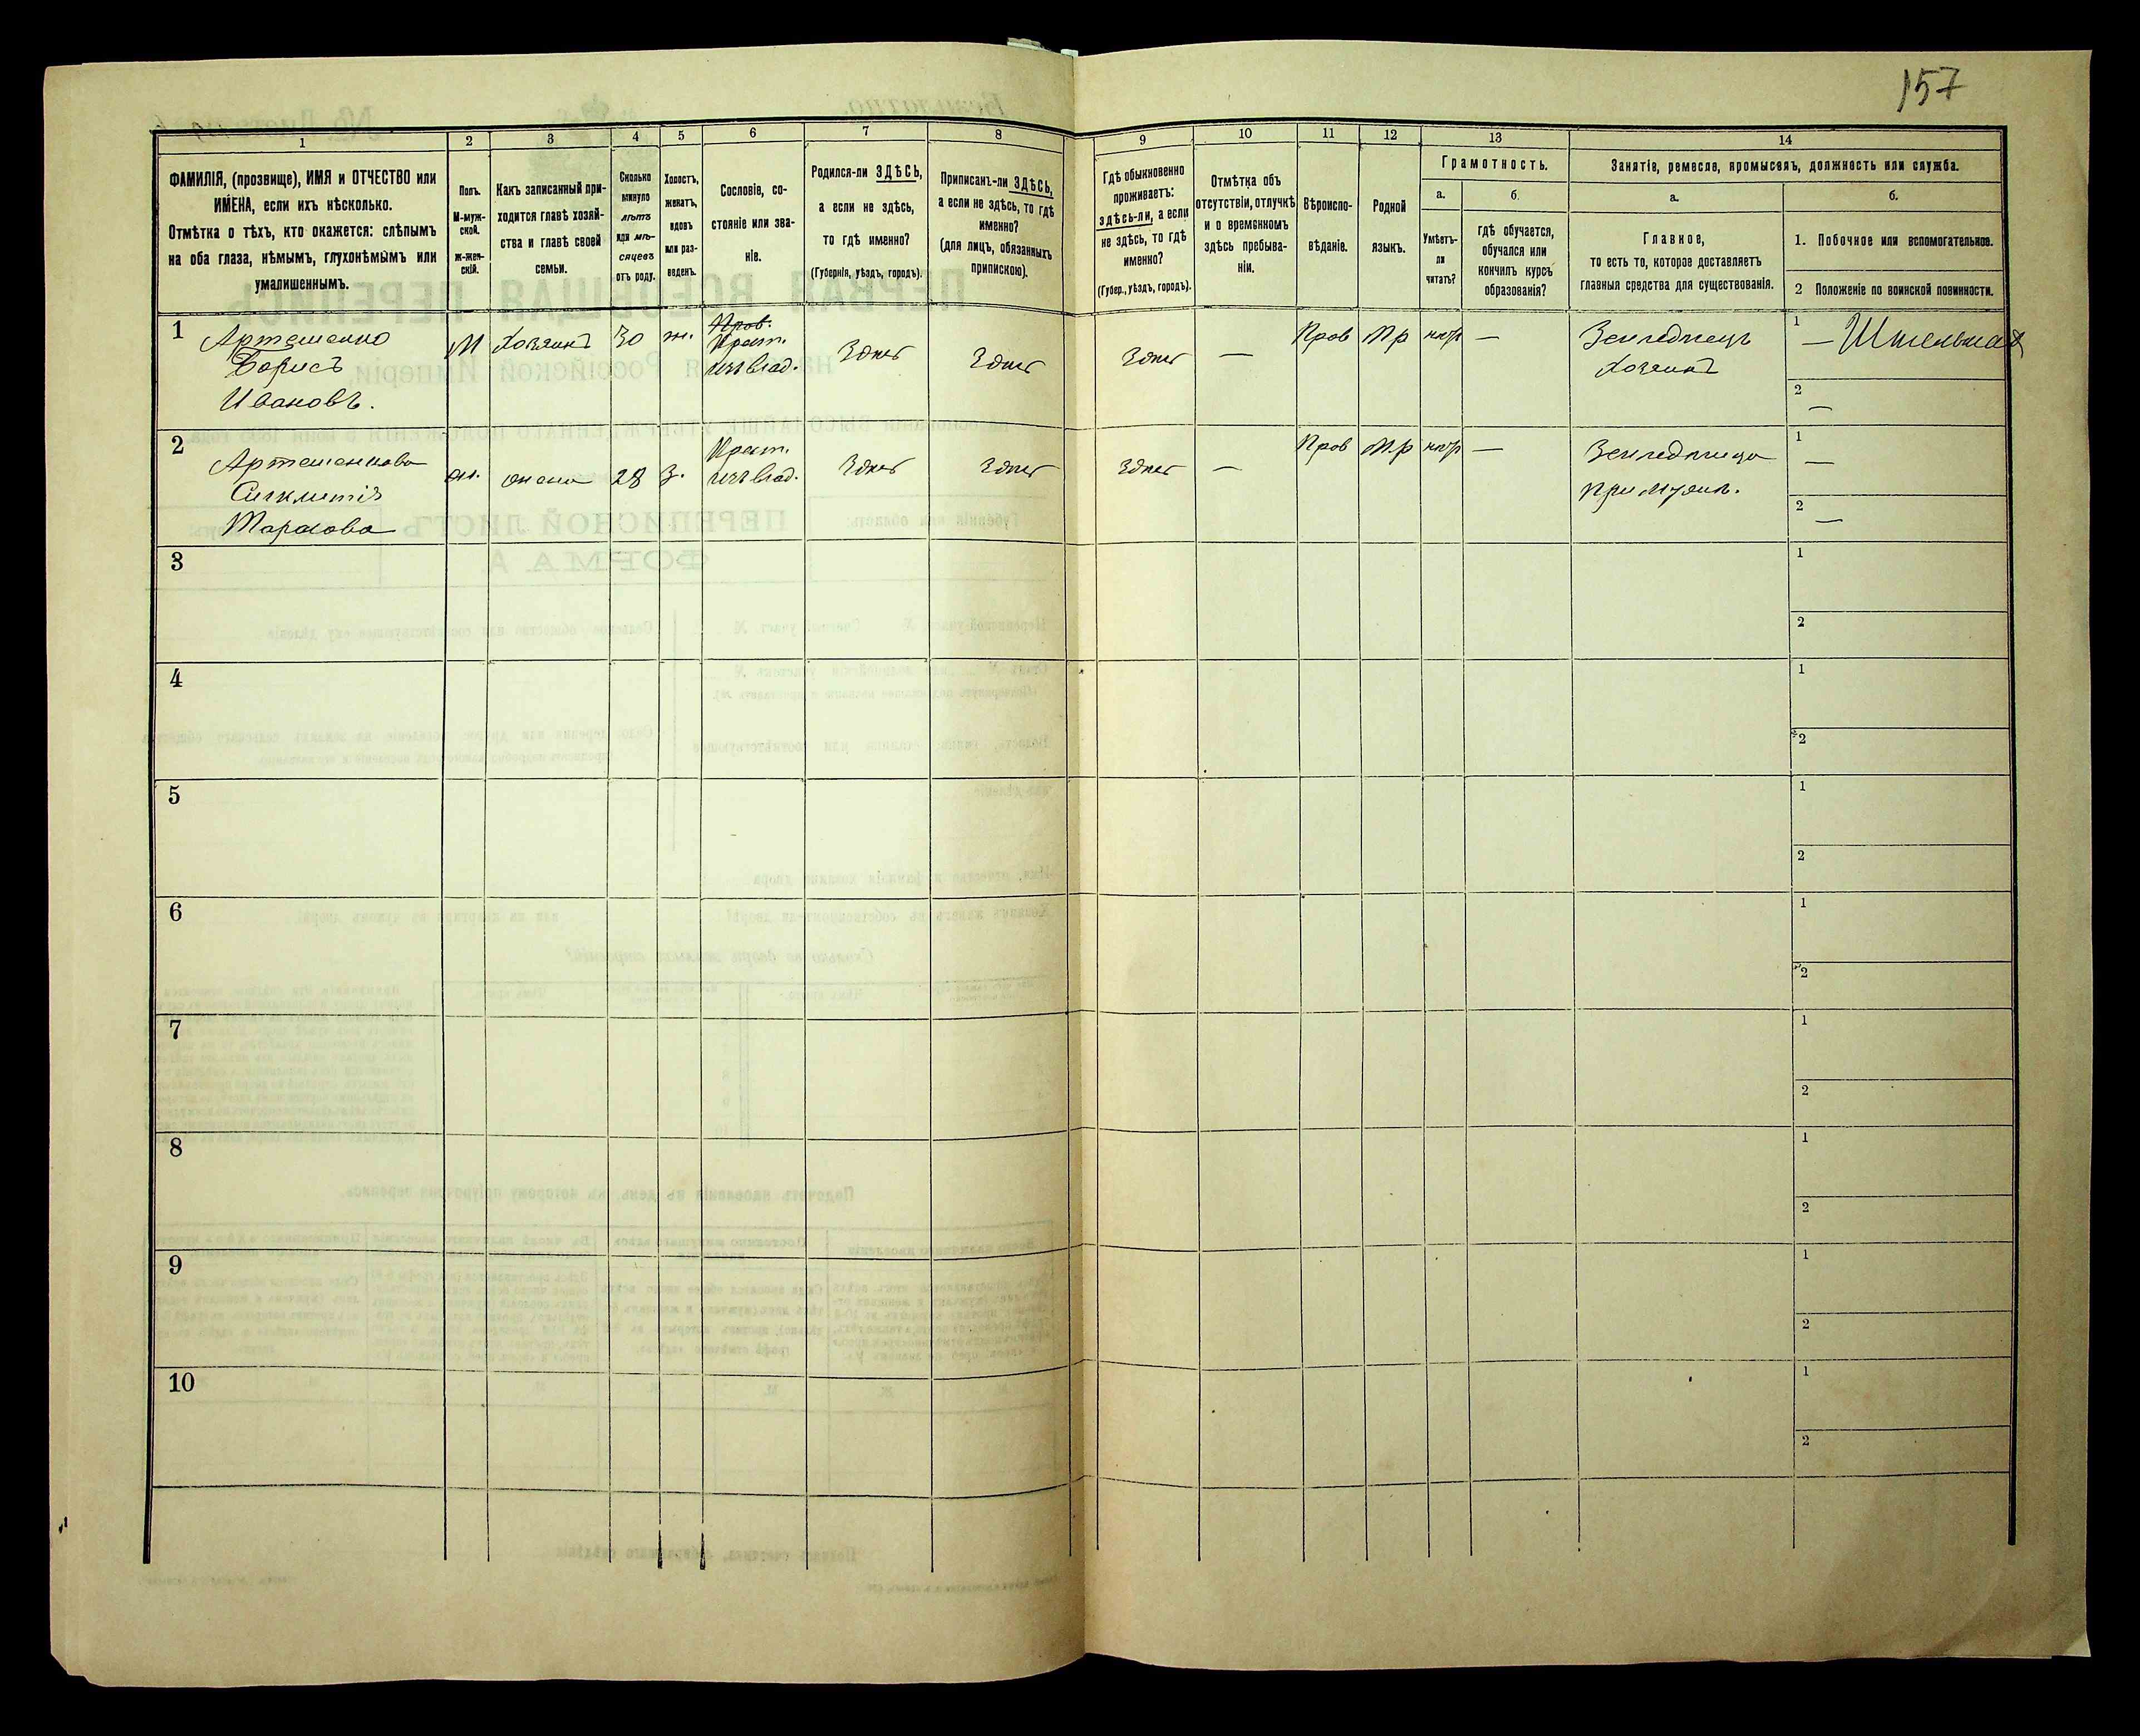 157
1 2 3 4 5 6 7 8 9 10 11 12 13 14
ФАМИЛІЯ, (прозвище), ИМЯ и ОТЧЕСТВО или
ИМЕНА, если ихъ нѣсколько.
Отмѣтка о тѣхъ, кто окажется: слѣпымъ
на оба глаза, нѣмымъ, глухонѣмымъ или
умалишеннымъ.
Полъ.
М-муж-
ской.
ж-жен-
скій.
Какъ записанный при-
ходится главѣ хозяй-
ства и главѣ своей
семьи.
Сколько
минуло
лѣтъ
или мѣ-
сяцевъ
отъ роду.
Холостъ,
женатъ,
вдовъ
или раз-
веденъ.
Сословіе, со-
стояніе или зва-
ніе.
Родился-ли ЗДѢСЬ,
а если не здѣсь,
то гдѣ именно?
(Губернія, уѣздъ, городъ).
Приписанъ-ли ЗДѢСЬ,
а если не здѣсь, то гдѣ
именно?
(для лицъ, обязанныхъ
припискою).
Гдѣ обыкновенно
проживаетъ:
здѣсь-ли, а если
не здѣсь, то гдѣ
именно?
(Губер., уѣздъ, городъ).
Отмѣтка объ
отсутствіи, отлучкѣ
и о временномъ
здѣсь пребыва-
ніи.
Вѣроиспо-
вѣданіе.
Родной
языкъ.
Грамотность.
а.
Умѣетъ-
ли
читать?
б.
гдѣ обучается,
обучался или
кончилъ курсъ
образованія?
Занятіе, ремесло, промыселъ, должность или служба.
а.
Главное,
то есть то, которое доставляетъ
главныя средства для существованія.
б.
1. Побочное или вспомогательное.
2 Положеніе по воинской повинности.
1
Артешенко
Борисъ
Ивановъ.
М
Хозяинъ
30
ж.
Прав.
Крест.
изъ влад.
Здѣсь
Здѣсь
Здѣсь
—
Прав
М р
нѣтъ
—
Земледѣлецъ
Хозяинъ
1
—
2
—
2
Артешенкова
Синклитія
Тарасова
ж.
жена
28
З.
Крест.
изъ влад.
Здѣсь
Здѣсь
Здѣсь
—
Прав
М.р
нѣтъ
—
Земледѣлица
при мужѣ.
1
—
2
—
3
1
2
4
1
2
5
1
2
6
1
2
7
1
2
8
1
2
9
1
2
10
1
2